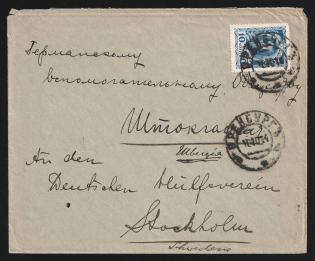 Германскому
вспомогательному
Штокгольм
Швеція
An den
Deutschen Hülfsverein
Stockholm
Schweden